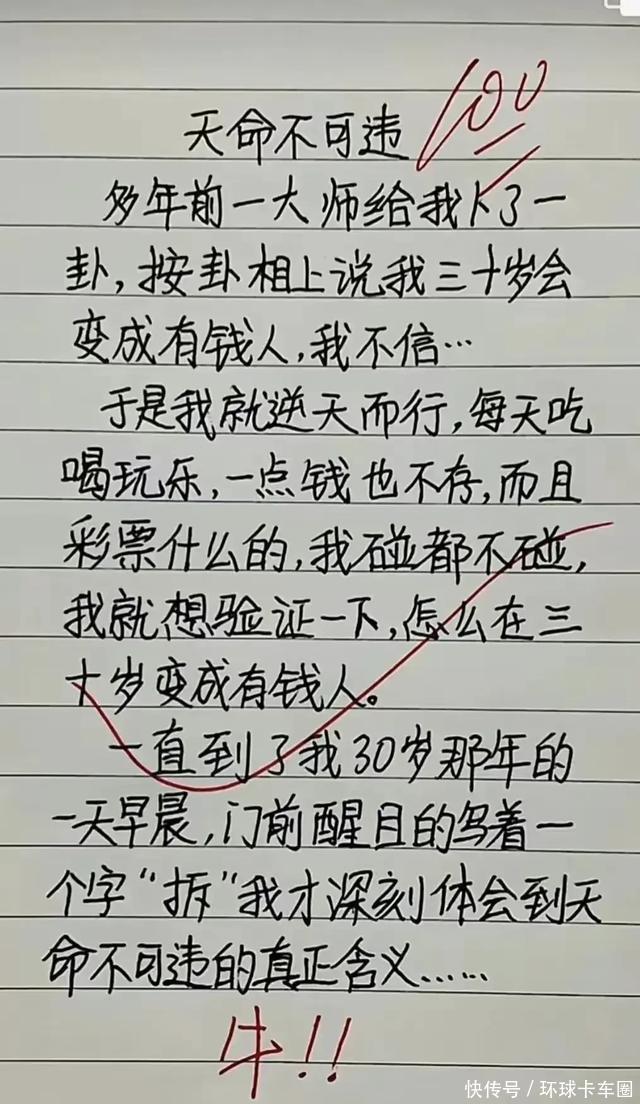 天命不可违
100
多年前一大师给我卜了一
卦,按卦相上说我三十岁会
变成有钱人,我不信…
于是我就逆天而行,每天吃
喝玩乐,一点钱也不存,而且
彩票什么的,我碰都不碰,
我就想验证一下,怎么在三
十岁变成有钱人。
一直到了我30岁那年的
一天早晨,门前醒目的写着一
个字“拆”我才深刻体会到天
命不可违的真正含义……
牛!!
快传号/环球卡车圈